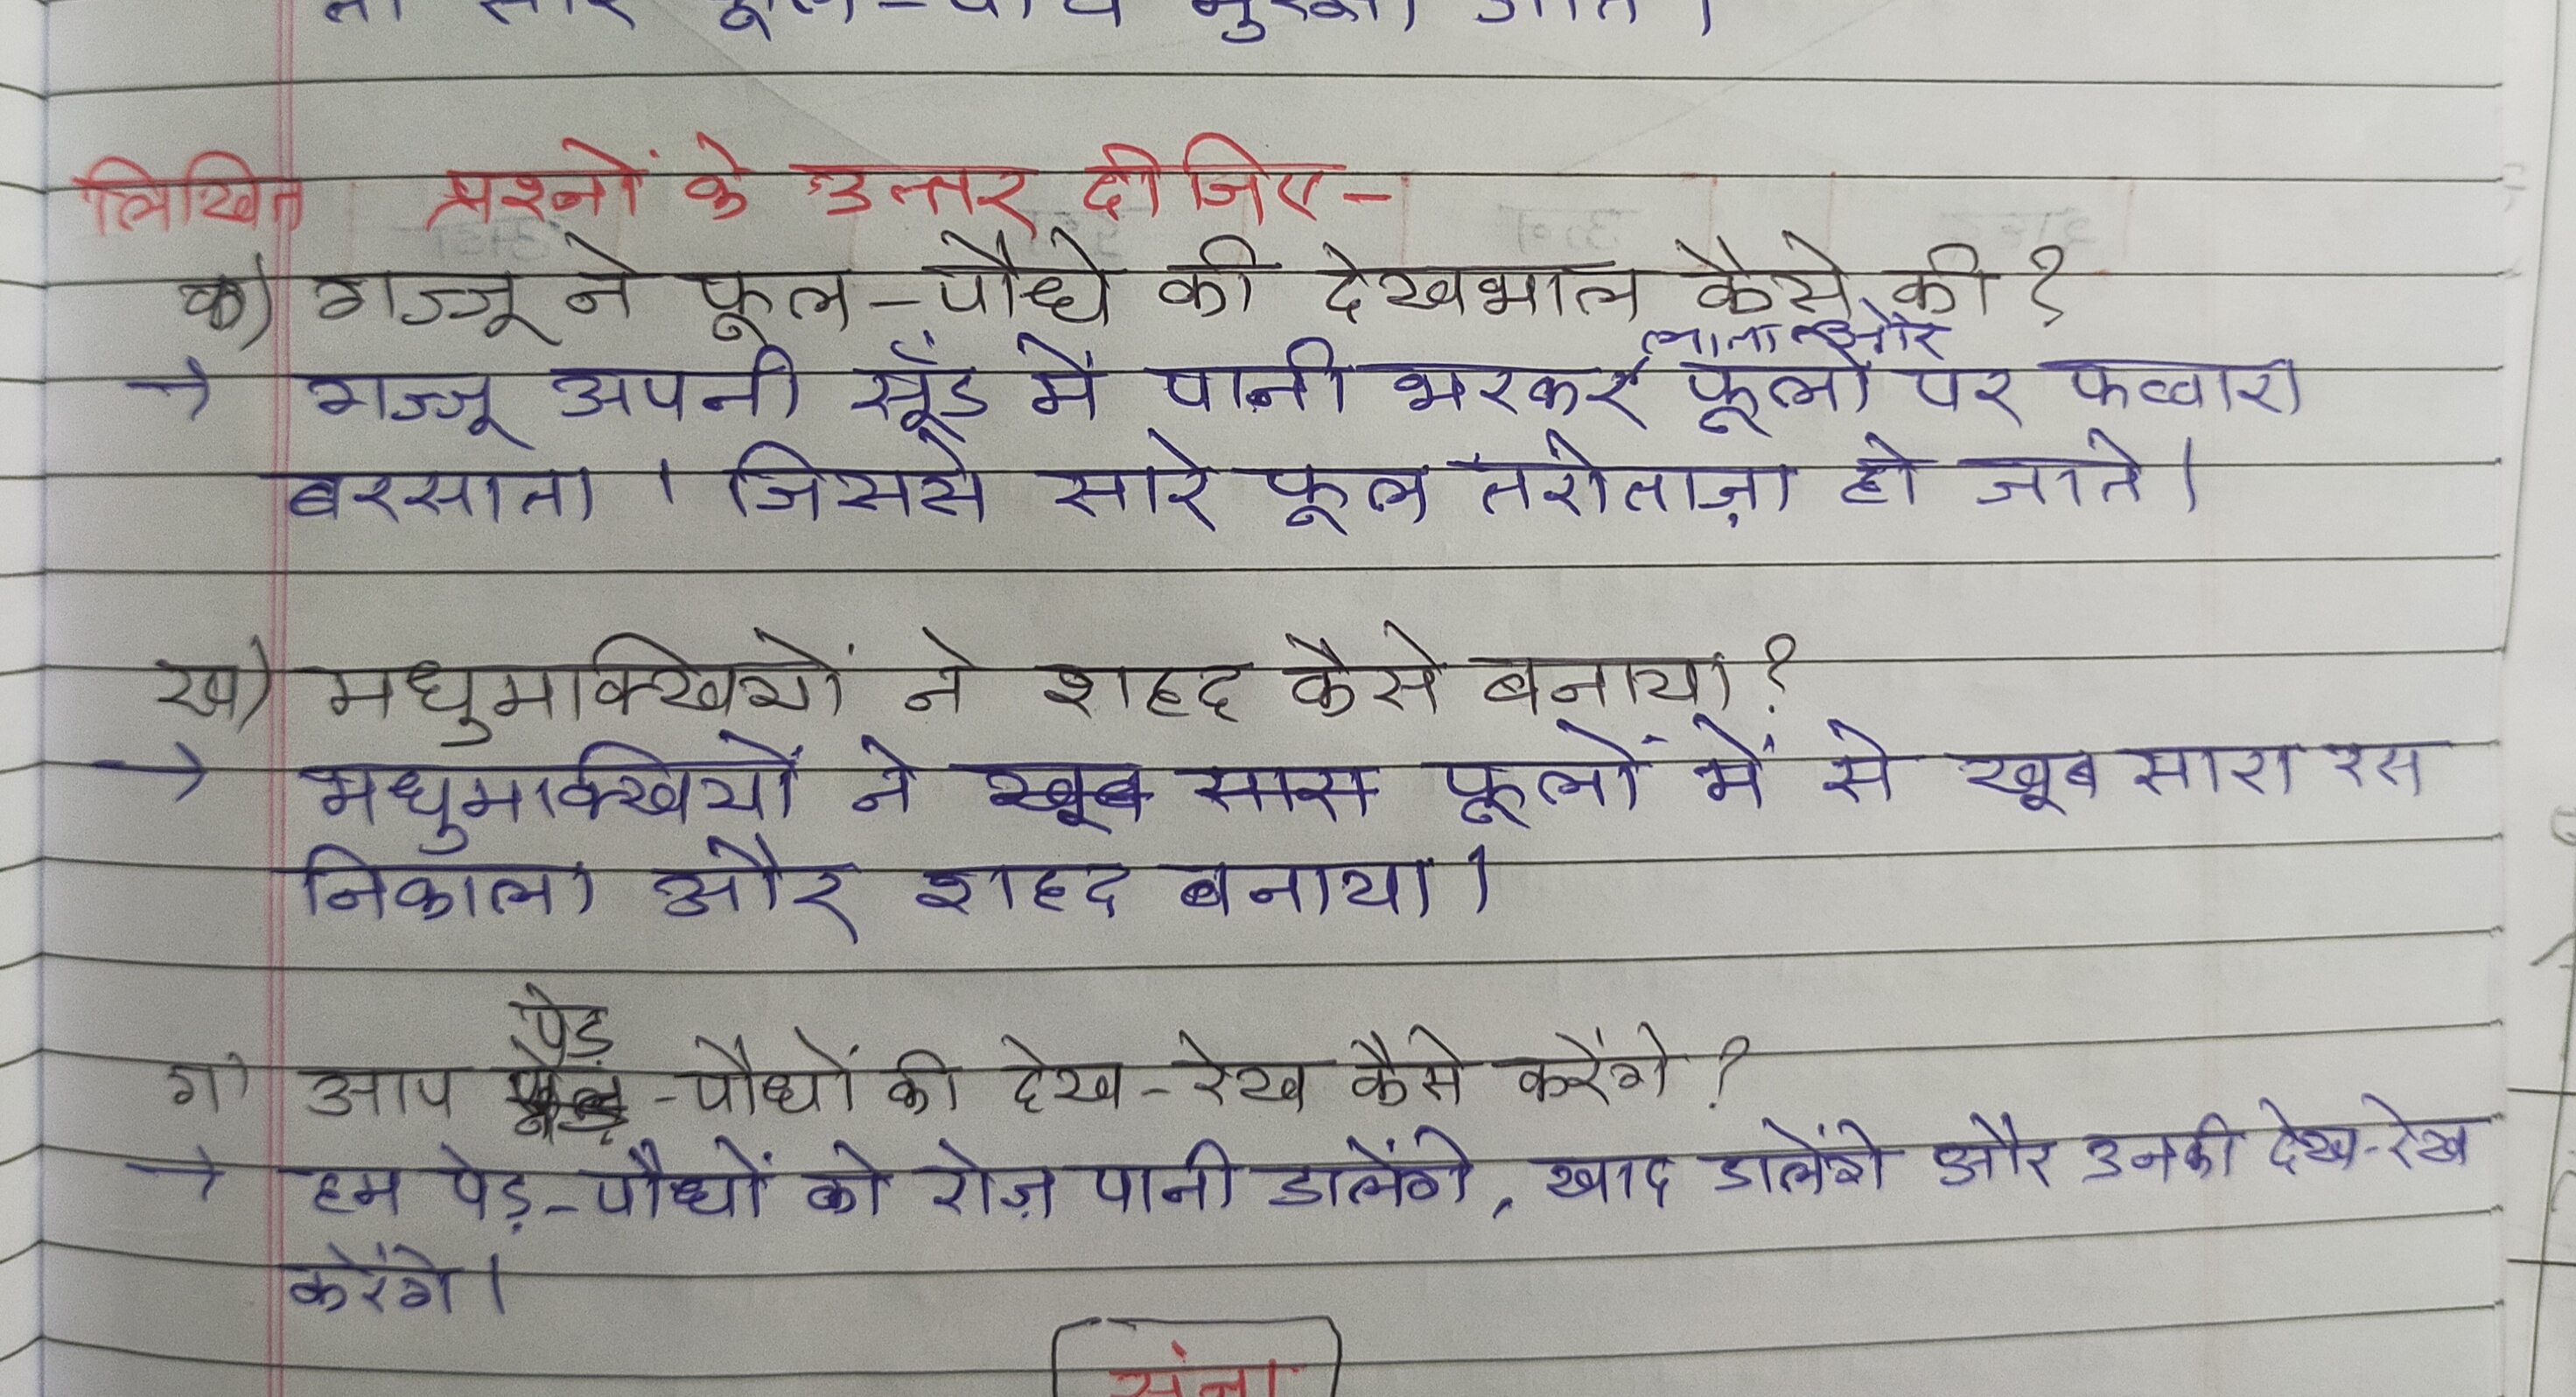 लिखित प्रश्नों के उत्तर दीजिए-
क) गज्जू ने फूल-पौधे की देखभाल कैसे की?
लाता और
→ गज्जू अपनी सूँड में पानी भरकर फूलों पर फव्वारा
बरसाता । जिससे सारे फूल तरोताज़ा हो जाते।
ख) मधुमक्खियों ने शहद कैसे बनाया?
→ मधुमक्खियों ने खूब सारा फूलों में से खूब सारा रस
निकाला और शहद बनाया।
पेड़
ग) आप -पौधों की देख-रेख कैसे करेंगे?
→ हम पेड़-पौधों को रोज़ पानी डालेंगे, खाद डालेंगे और उनकी देख-रेख
करेंगे।